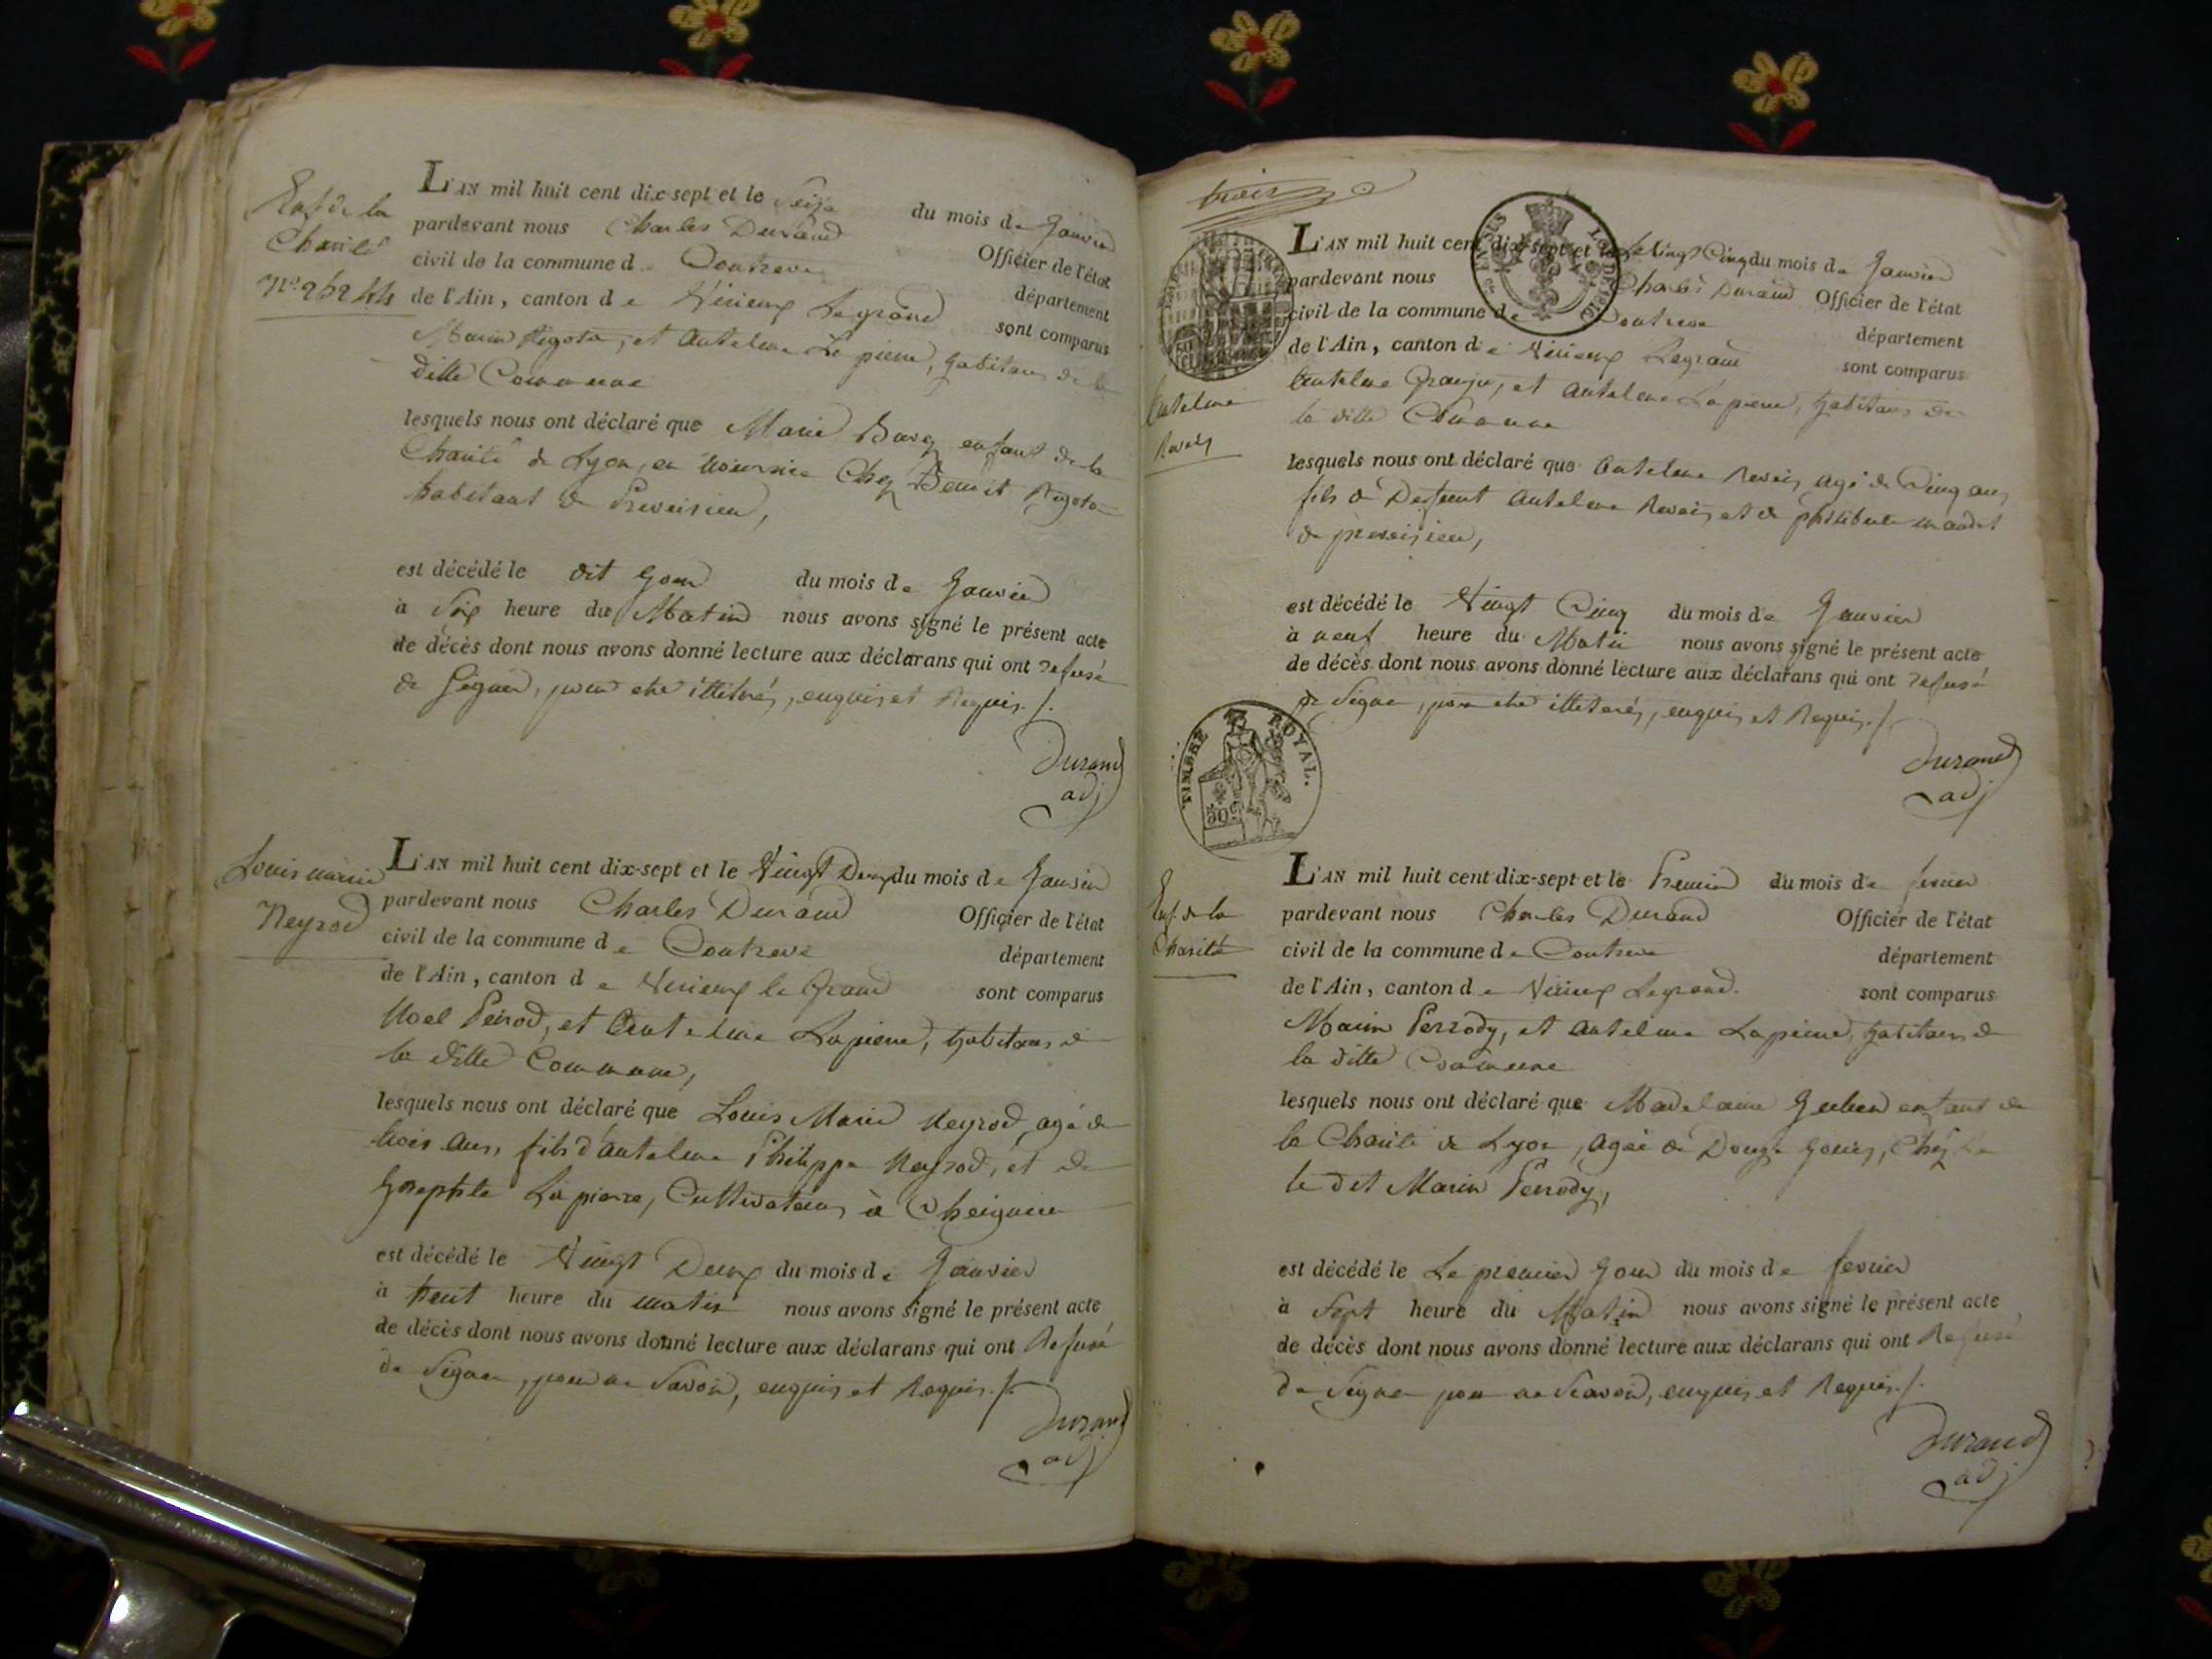 Enf de la
Charité
L'AN mil huit cent dix-sept et le Seize du mois de Janvier
pardevant nous Charles Durand Officier de l'état
civil de la commune de Contrevoz département
de l'Ain, canton de Virieux Legrand sont comparus
Marin Rigotor, et Antelme Lapierre, habitans de la
ditte Commune
lesquels nous ont déclaré que Marie enfant de la
Charité de Lyon, en nourrice Chez Benoit Rigotor
habitant de Preveisieu,
est décédé le dit Jour du mois de Janvier
à Six heure du Matin nous avons signé le présent acte
de décès dont nous avons donné lecture aux déclarans qui ont refusé
de Signer, pour etre illiteres, enquis et Requis ./.
Durand
adj
Louis marie
Neyrod
L'AN mil huit cent dix-sept et le Vingt Deux du mois de Janvier
pardevant nous Charles Durand Officier de l'état
civil de la commune de Contrevoz département
de l'Ain, canton de Virieux le Grand sont comparus
Noel Peirod, et Antelme Lapierre, habitans de
la ditte Commune,
lesquels nous ont déclaré que Louis Marie Neyrod, agé de
trois ans, fils d'antelme Philippe Neyrod, et de
Josephte Lapierre, Cultivateurs à Cheignieu
est décédé le Vingt Deux du mois de Janvier
à huit heure du matin nous avons signé le présent acte
de décès dont nous avons donné lecture aux déclarans qui ont Refusé
de Signer, pour ne Savoir, enquis et Requis ./.
Durand
adj
trois
L'AN mil huit cent dix-sept et le Vingt Cinq du mois de Janvier
pardevant nous Charles Durand Officier de l'état
civil de la commune de Contrevoz département
de l'Ain, canton de Virieux Legrand sont comparus
Antelme et Antelme Lapierre, habitans de
la ditte Commune
Antelme
Revois
lesquels nous ont déclaré que Antelme Revois agé de Cinq ans,
fils de Deffunt Antelme Revois et de philiberte
de preveisieu,
est décédé le Vingt Cinq du mois de Janvier
à neuf heure du Matin nous avons signé le présent acte
de décès dont nous avons donné lecture aux déclarans qui ont refusé
de Signer, pour etre illiteres, enquis et Requis ./.
TIMBRE ROYAL.
50c
Durand
adj
Enf. de la
Charité
L'AN mil huit cent dix-sept et le Premier du mois de fevrier
pardevant nous Charles Durand Officier de l'état
civil de la commune de Contrevoz département
de l'Ain, canton de Virieux Legrand. sont comparus
Marin Perrody, et Antelme Lapierre, habitans de
la ditte Commune
lesquels nous ont déclaré que Madelaine enfant de
la Charité de Lyon, agée de Douze Jours, Chez
le dit Marin Perrody,
est décédé le Le premier Jour du mois de fevrier
à Sept heure du Matin nous avons signé le présent acte
de décès dont nous avons donné lecture aux déclarans qui ont Refusé
de Signer pour ne Scavoir, enquis et Requis ./.
Durand
adj